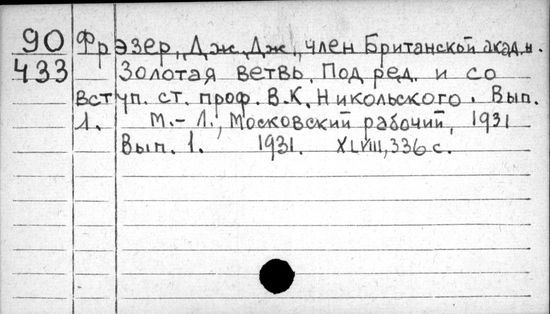 90 Фрэзер, Дж. Дж., член Британской акад. н.
433 Золотая ветвь. Под ред. и со
вступ. ст. проф. В.К. Никольского. Вып.
1. М.-Л., Московский рабочий, 1931
Вып. 1. 1931. XLVIII, 336 с.